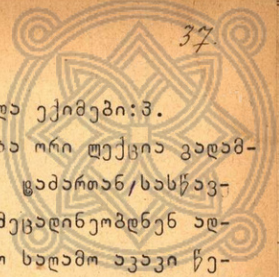 37.
და ექიმები:ვ.
ბა ორი ლექცია გადამ-
ტამართან,სასწავ-
მეცადინეობდნენ ად-
ო საღამო აკაკი წე-